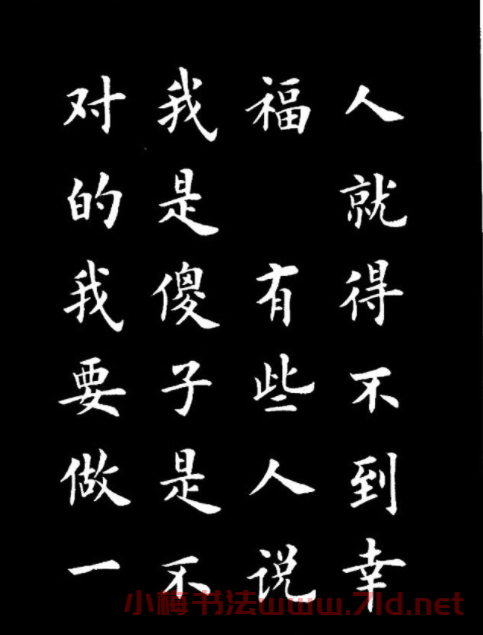 人就得不到幸
福 有些人说
我是傻子是不
对的我要做一
小梅书法www.7ld.net